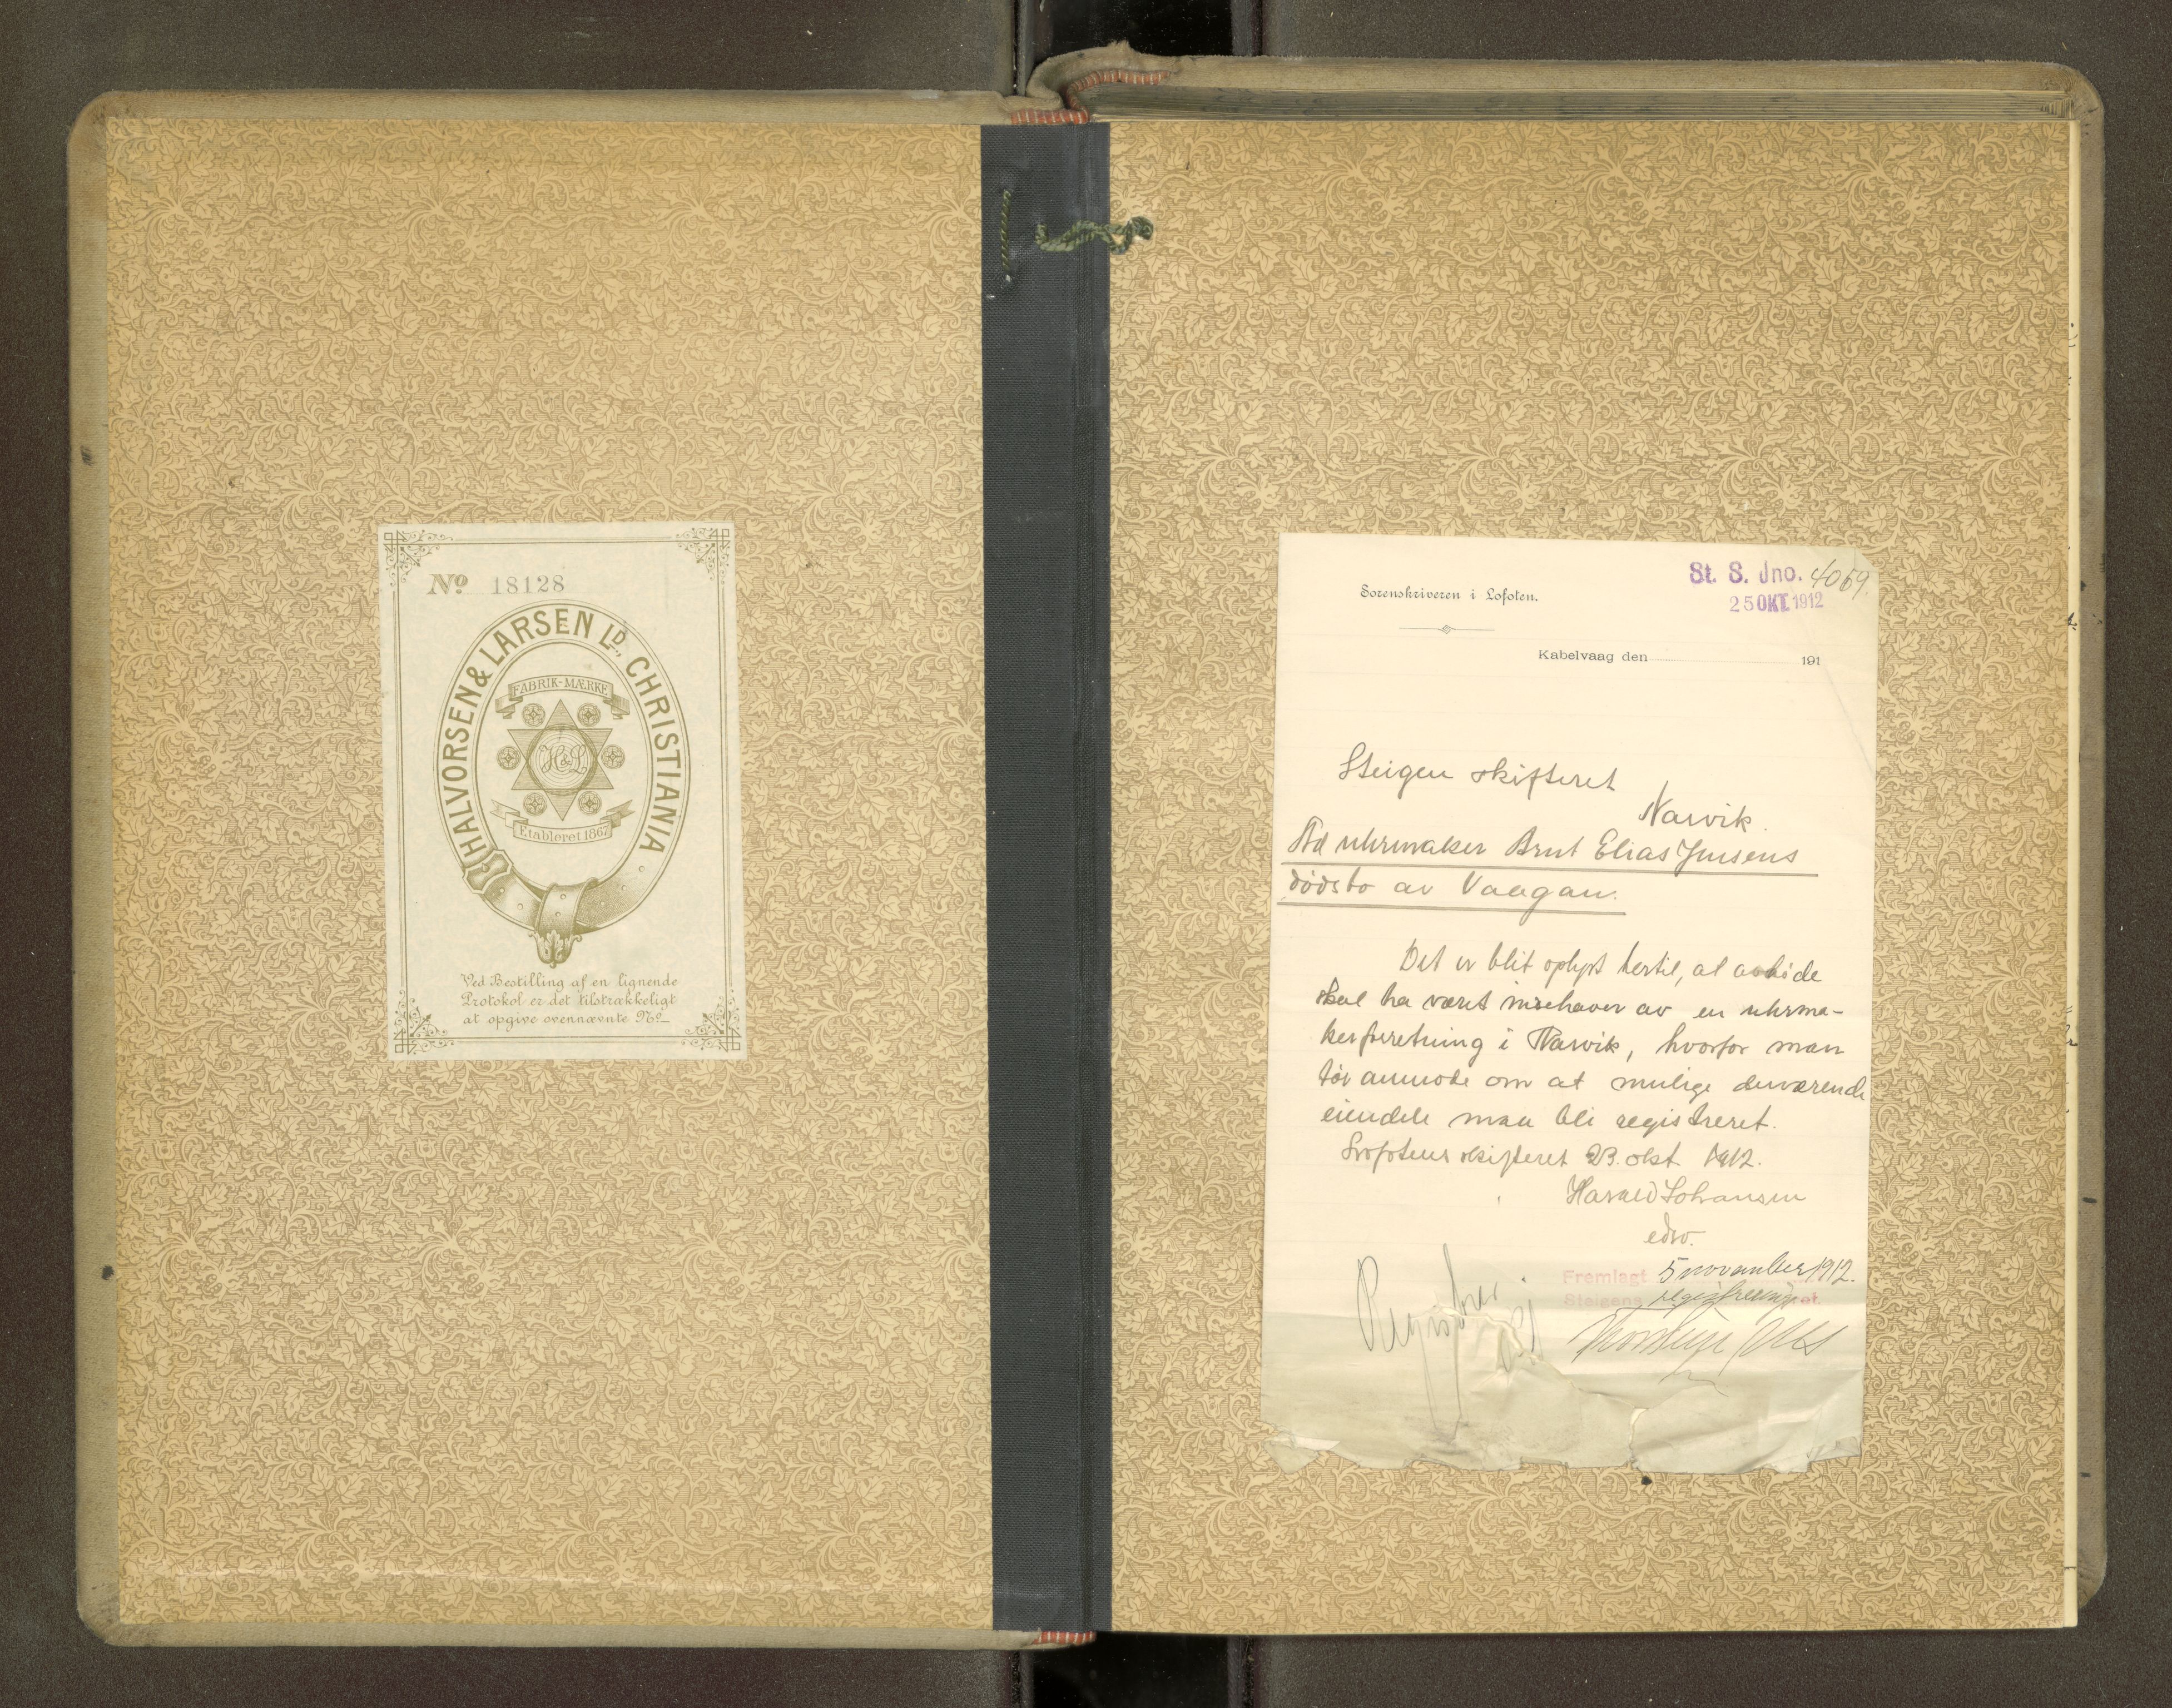 No 18128
HALVORSEN & LARSEN LD., CHRISTIANIA
FABRIK-MÆRKE
H&L
Etableret 1867
Ved Bestilling af en lignende
Protokol er det tilstrækkeligt
at opgive ovennævnte No
St. S. Jno. 4059.
25 OKT. 1912
Sorenskriveren i Lofoten.
Kabelvaag den 191
Steigen skifteret
Narvik.
Ad uhrmaker Brut Elias Jensens
dødsbo av Vaagan.
Det er blit oplyst hertil, at avdøde
skal ha været indehaver av en uhrma-
kerforretning i Narvik, hvorfor man
tør anmode om at mulige derværende
eiendele maa bli registreret.
Lofotens skifteret 23. okt. 1912.
Harald Johansen
edsv.
Fremlagt 5 november 1912.
Steigens registreringsret.